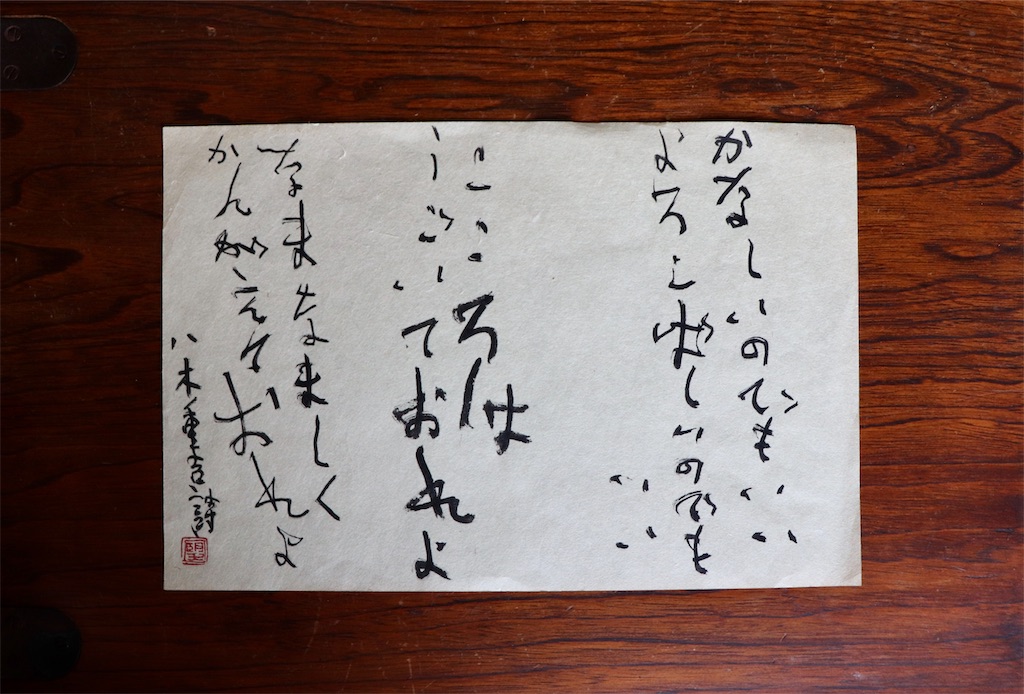 かなしいのでもいい
よろこばしいのでも
いい
こころは
うごいておれよ
なまなましく
かんがえておれよ
八木重吉詩